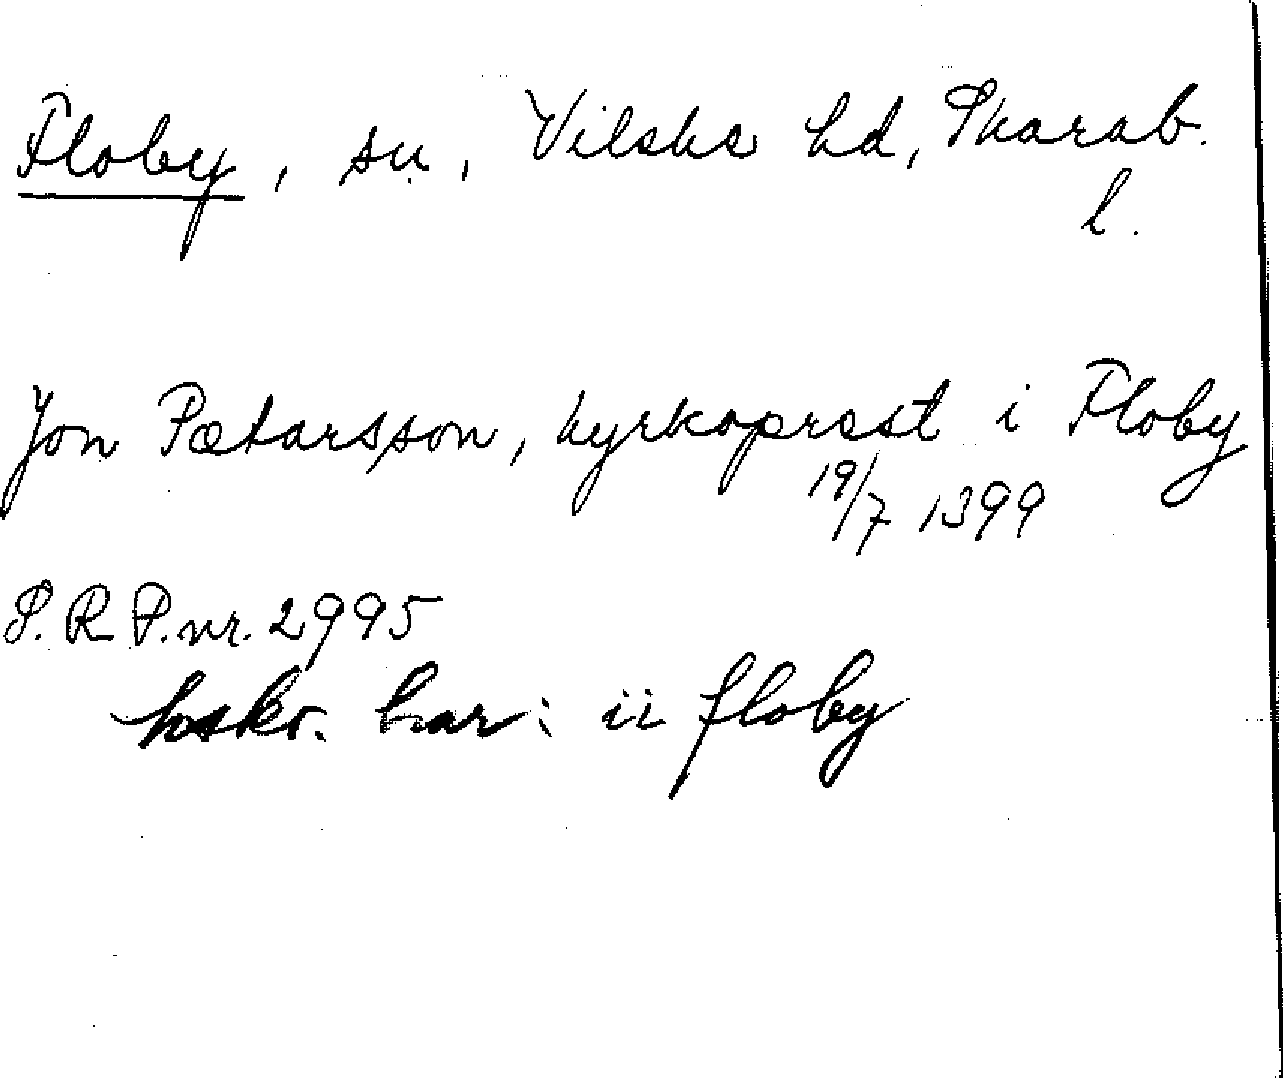 Floby, sn, Vilske hd, Skarab.
l.
Jon Pætarsson, kyrkoprest i Floby
19/7 1399
S.R.P.nr. 2995
hskr. har: ii floby